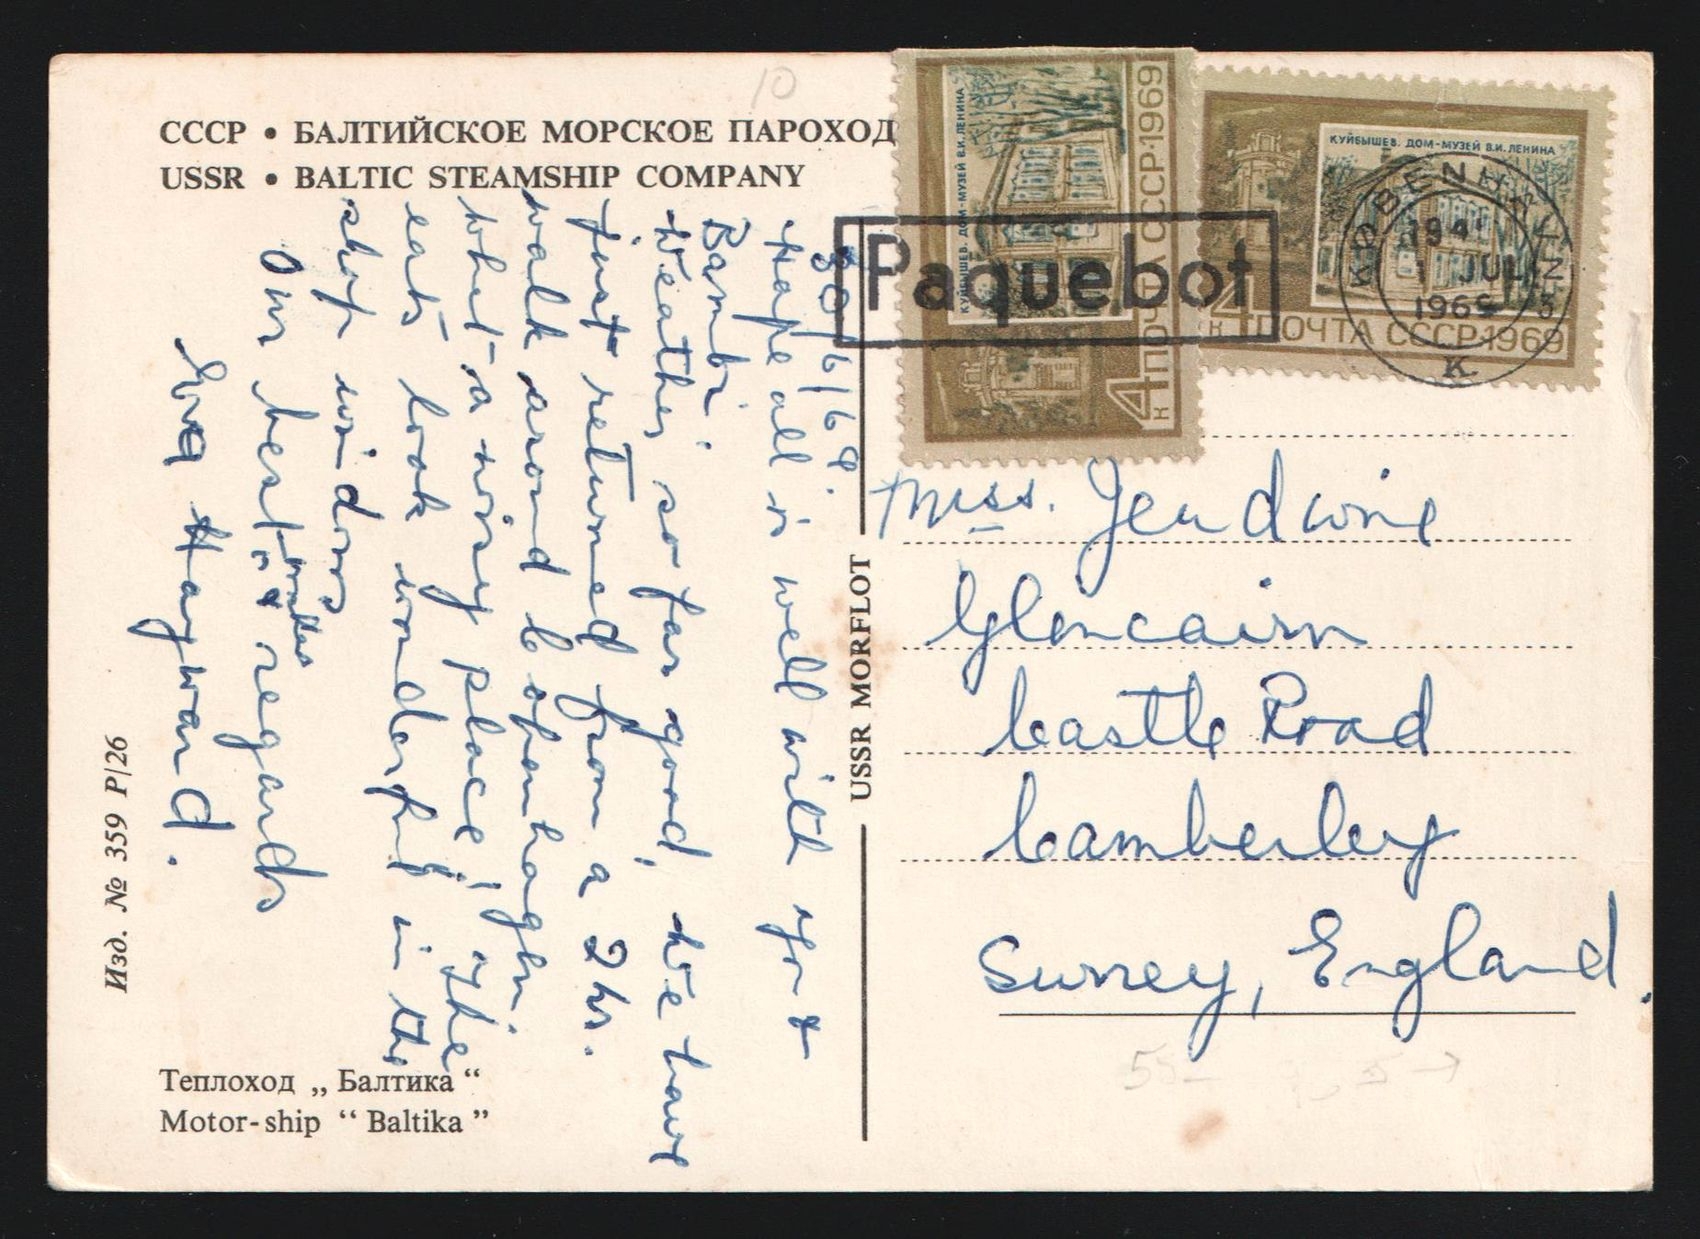 10
СССР • БАЛТИЙСКОЕ МОРСКОЕ ПАРОХОД
USSR • BALTIC STEAMSHIP COMPANY
30/6/69.
Hope all is well with you &
Bambi.
Weather so far good, we have
just returned from a 2 hr.
walk around Copenhagen.
What a noisy place, & the
eats look wonderful in the
shop windows
Our best wishes & regards
Eva Hayward.
Изд. № 359 Р/26
Теплоход „ Балтика “
Motor-ship “ Baltika ”
USSR MORFLOT
КУЙБЫШЕВ. ДОМ-МУЗЕЙ В.И. ЛЕНИНА
4к ПОЧТА СССР·1969
КУЙБЫШЕВ. ДОМ-МУЗЕЙ В.И. ЛЕНИНА
4к ПОЧТА СССР·1969
Paquebot
KØBENHAVN
1 JUL
1969
K.
Miss. Jendwine
Glencairn
Castle Road
Camberley
Surrey, England.